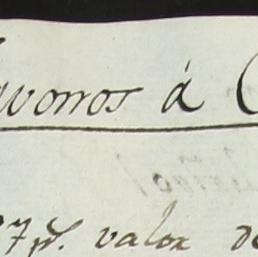 worros á C
7 p.^s valor de